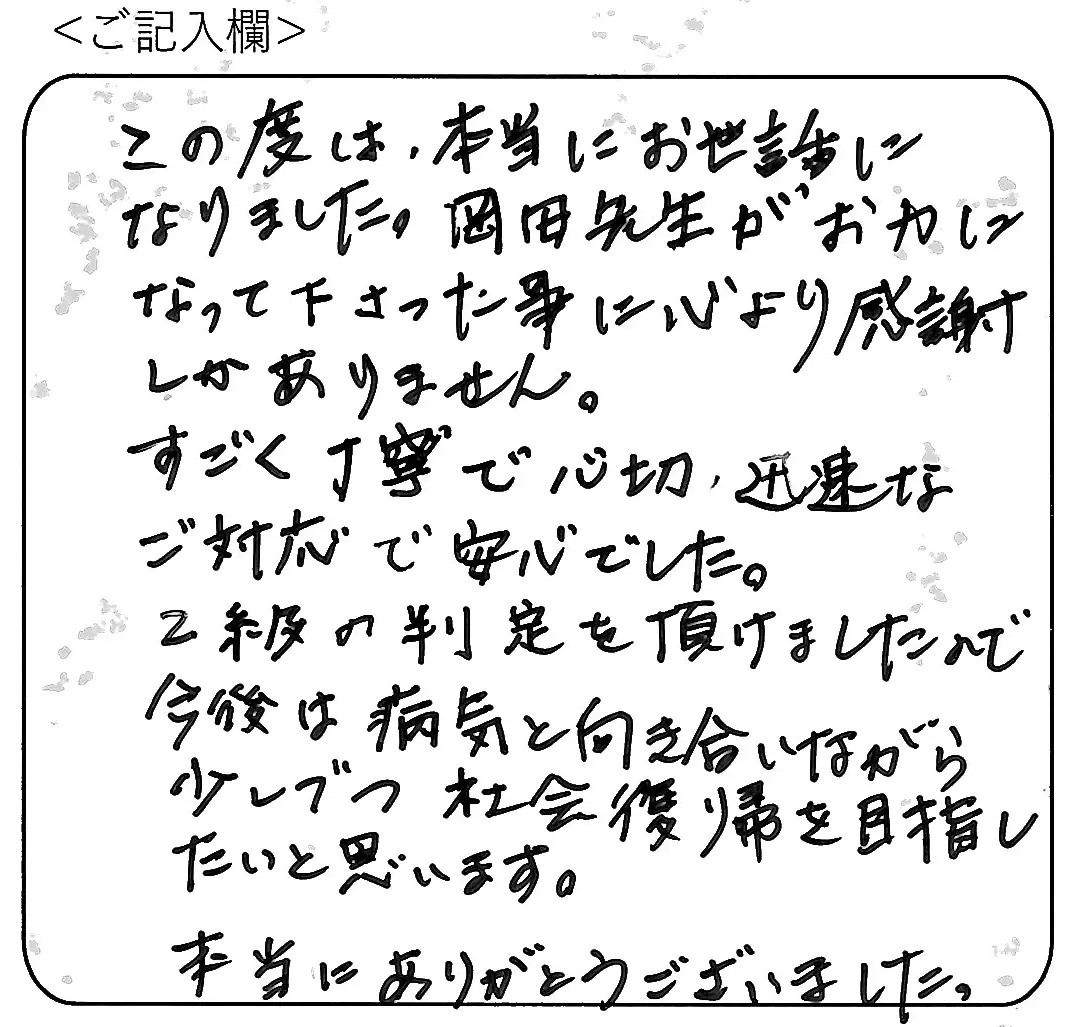 <ご記入欄>
この度は、本当にお世話に
なりました。岡田先生がお力に
なって下さった事に心より感謝
しかありません。
すごく丁寧で心切、迅速な
ご対応で安心でした。
2級の判定を頂けましたので
今後は病気と向き合いながら
少しづつ社会復帰を目指し
たいと思います。
本当にありがとうございました。